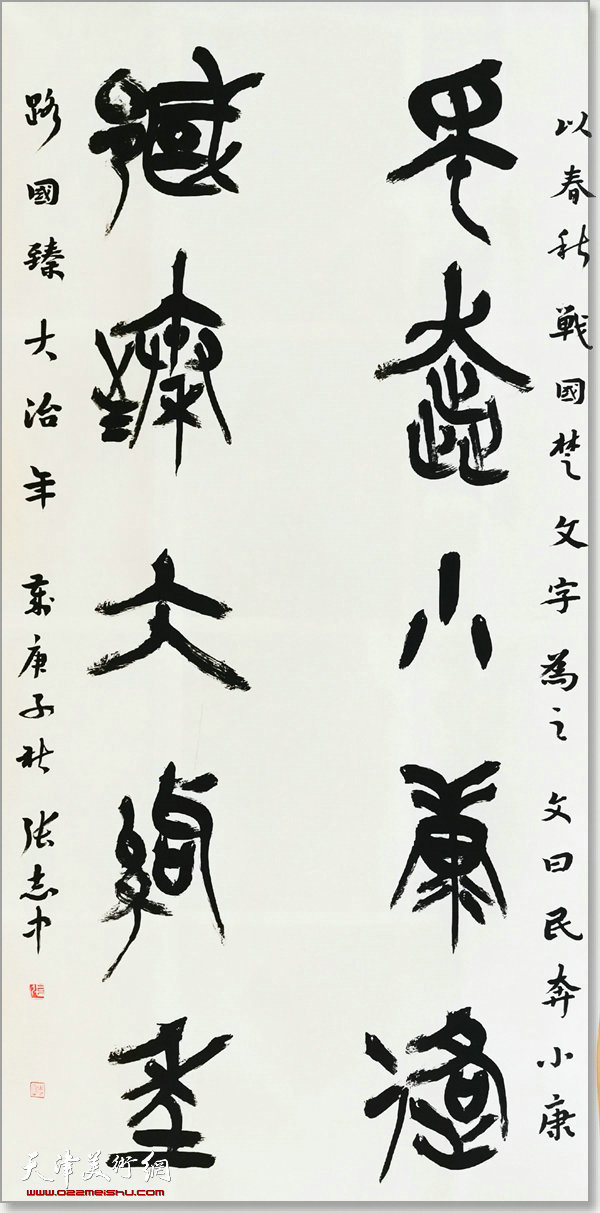 以春秋戰國楚文字為之 文曰民奔小康
民奔小康路
國臻大治年
路國臻大治年 歲庚子秋 張志中
天津美術網
www.022meishu.com